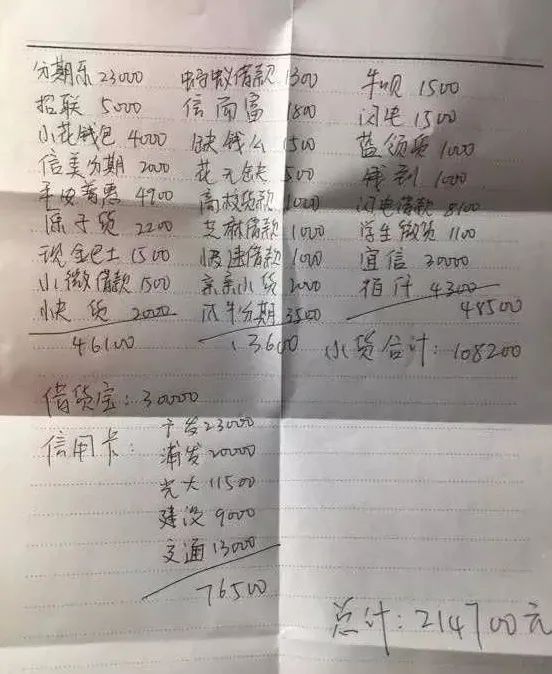 分期乐 23000
招联 5000
小花钱包 4000
信美分期 2000
平安普惠 4900
原子贷 2200
现金巴士 1500
小微借款 1500
小快贷 2000
46100
蚂蚁借款 1300
信而富 1800
缺钱么 1500
花无缺 500
高校贷款 1000
芝麻借款 1000
极速借款 1000
亲亲小贷 2000
风牛分期 3500
13600
牛呗 1500
闪电 1500
蓝领贷 1000
钱到 1000
闪电借款 8100
学生微贷 1100
宜信 30000
佰仟 4300
48500
小贷合计：108200
借贷宝：30000
信用卡：
广发 23000
浦发 20000
光大 11500
建设 9000
交通 13000
76500
总计：214700元